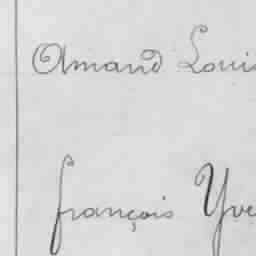 Amand Loui
françois Yve